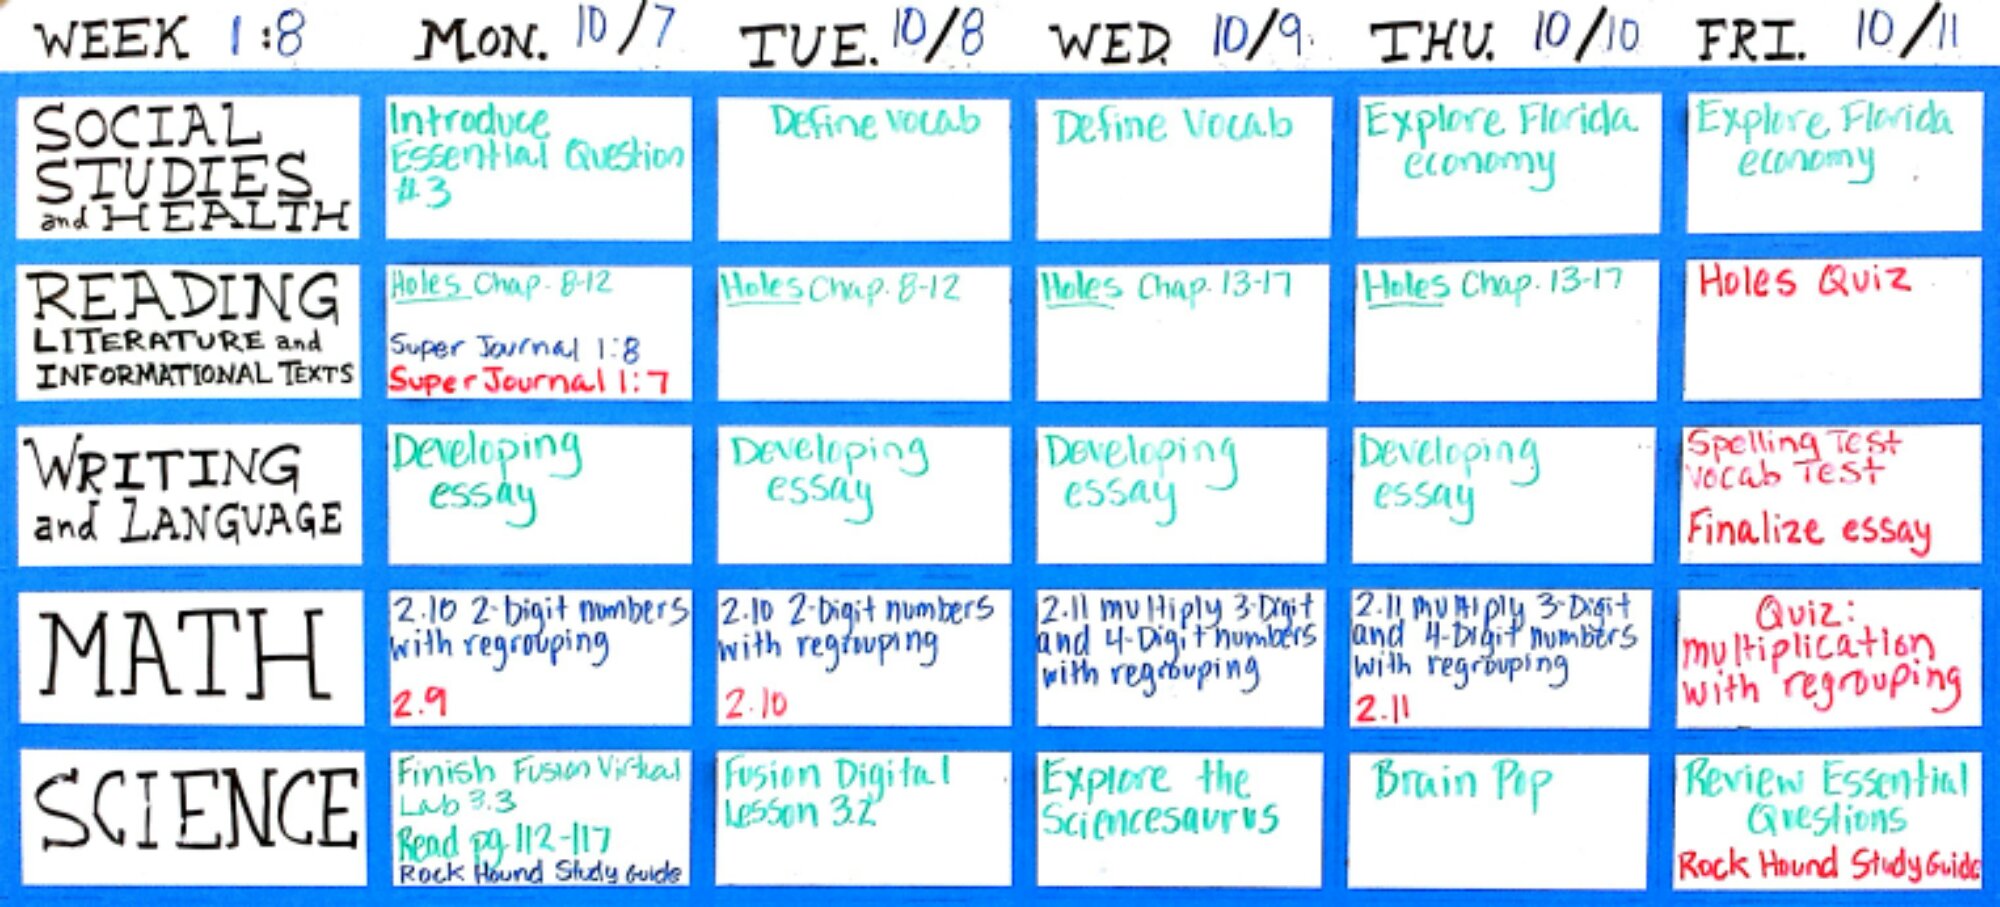 WEEK 1:8 MON. 10/7 TUE. 10/8 WED. 10/9 THU. 10/10 FRI. 10/11
SOCIAL
STUDIES
and HEALTH
Introduce
Essential Question
#3
Define vocab
Define Vocab
Explore Florida
economy
Explore Florida
economy
READING
LITERATURE and
INFORMATIONAL TEXTS
Holes Chap. 8-12
Super Journal 1:8
Super Journal 1:7
Holes Chap. 8-12
Holes Chap. 13-17
Holes Chap. 13-17
Holes Quiz
WRITING
and LANGUAGE
Developing
essay
Developing
essay
Developing
essay
Developing
essay
Spelling Test
Vocab Test
Finalize essay
MATH
2.10 2-Digit numbers
with regrouping
2.9
2.10 2-Digit numbers
with regrouping
2.10
2.11 multiply 3-Digit
and 4-Digit numbers
with regrouping
2.11 multiply 3-Digit
and 4-Digit numbers
with regrouping
2.11
Quiz:
multiplication
with regrouping
SCIENCE
Finish Fusion Virtual
Lab 3.3
Read pg 112-117
Rock Hound Study Guide
Fusion Digital
Lesson 3.2
Explore the
Sciencesaurus
Brain Pop
Review Essential
Questions
Rock Hound Study Guide